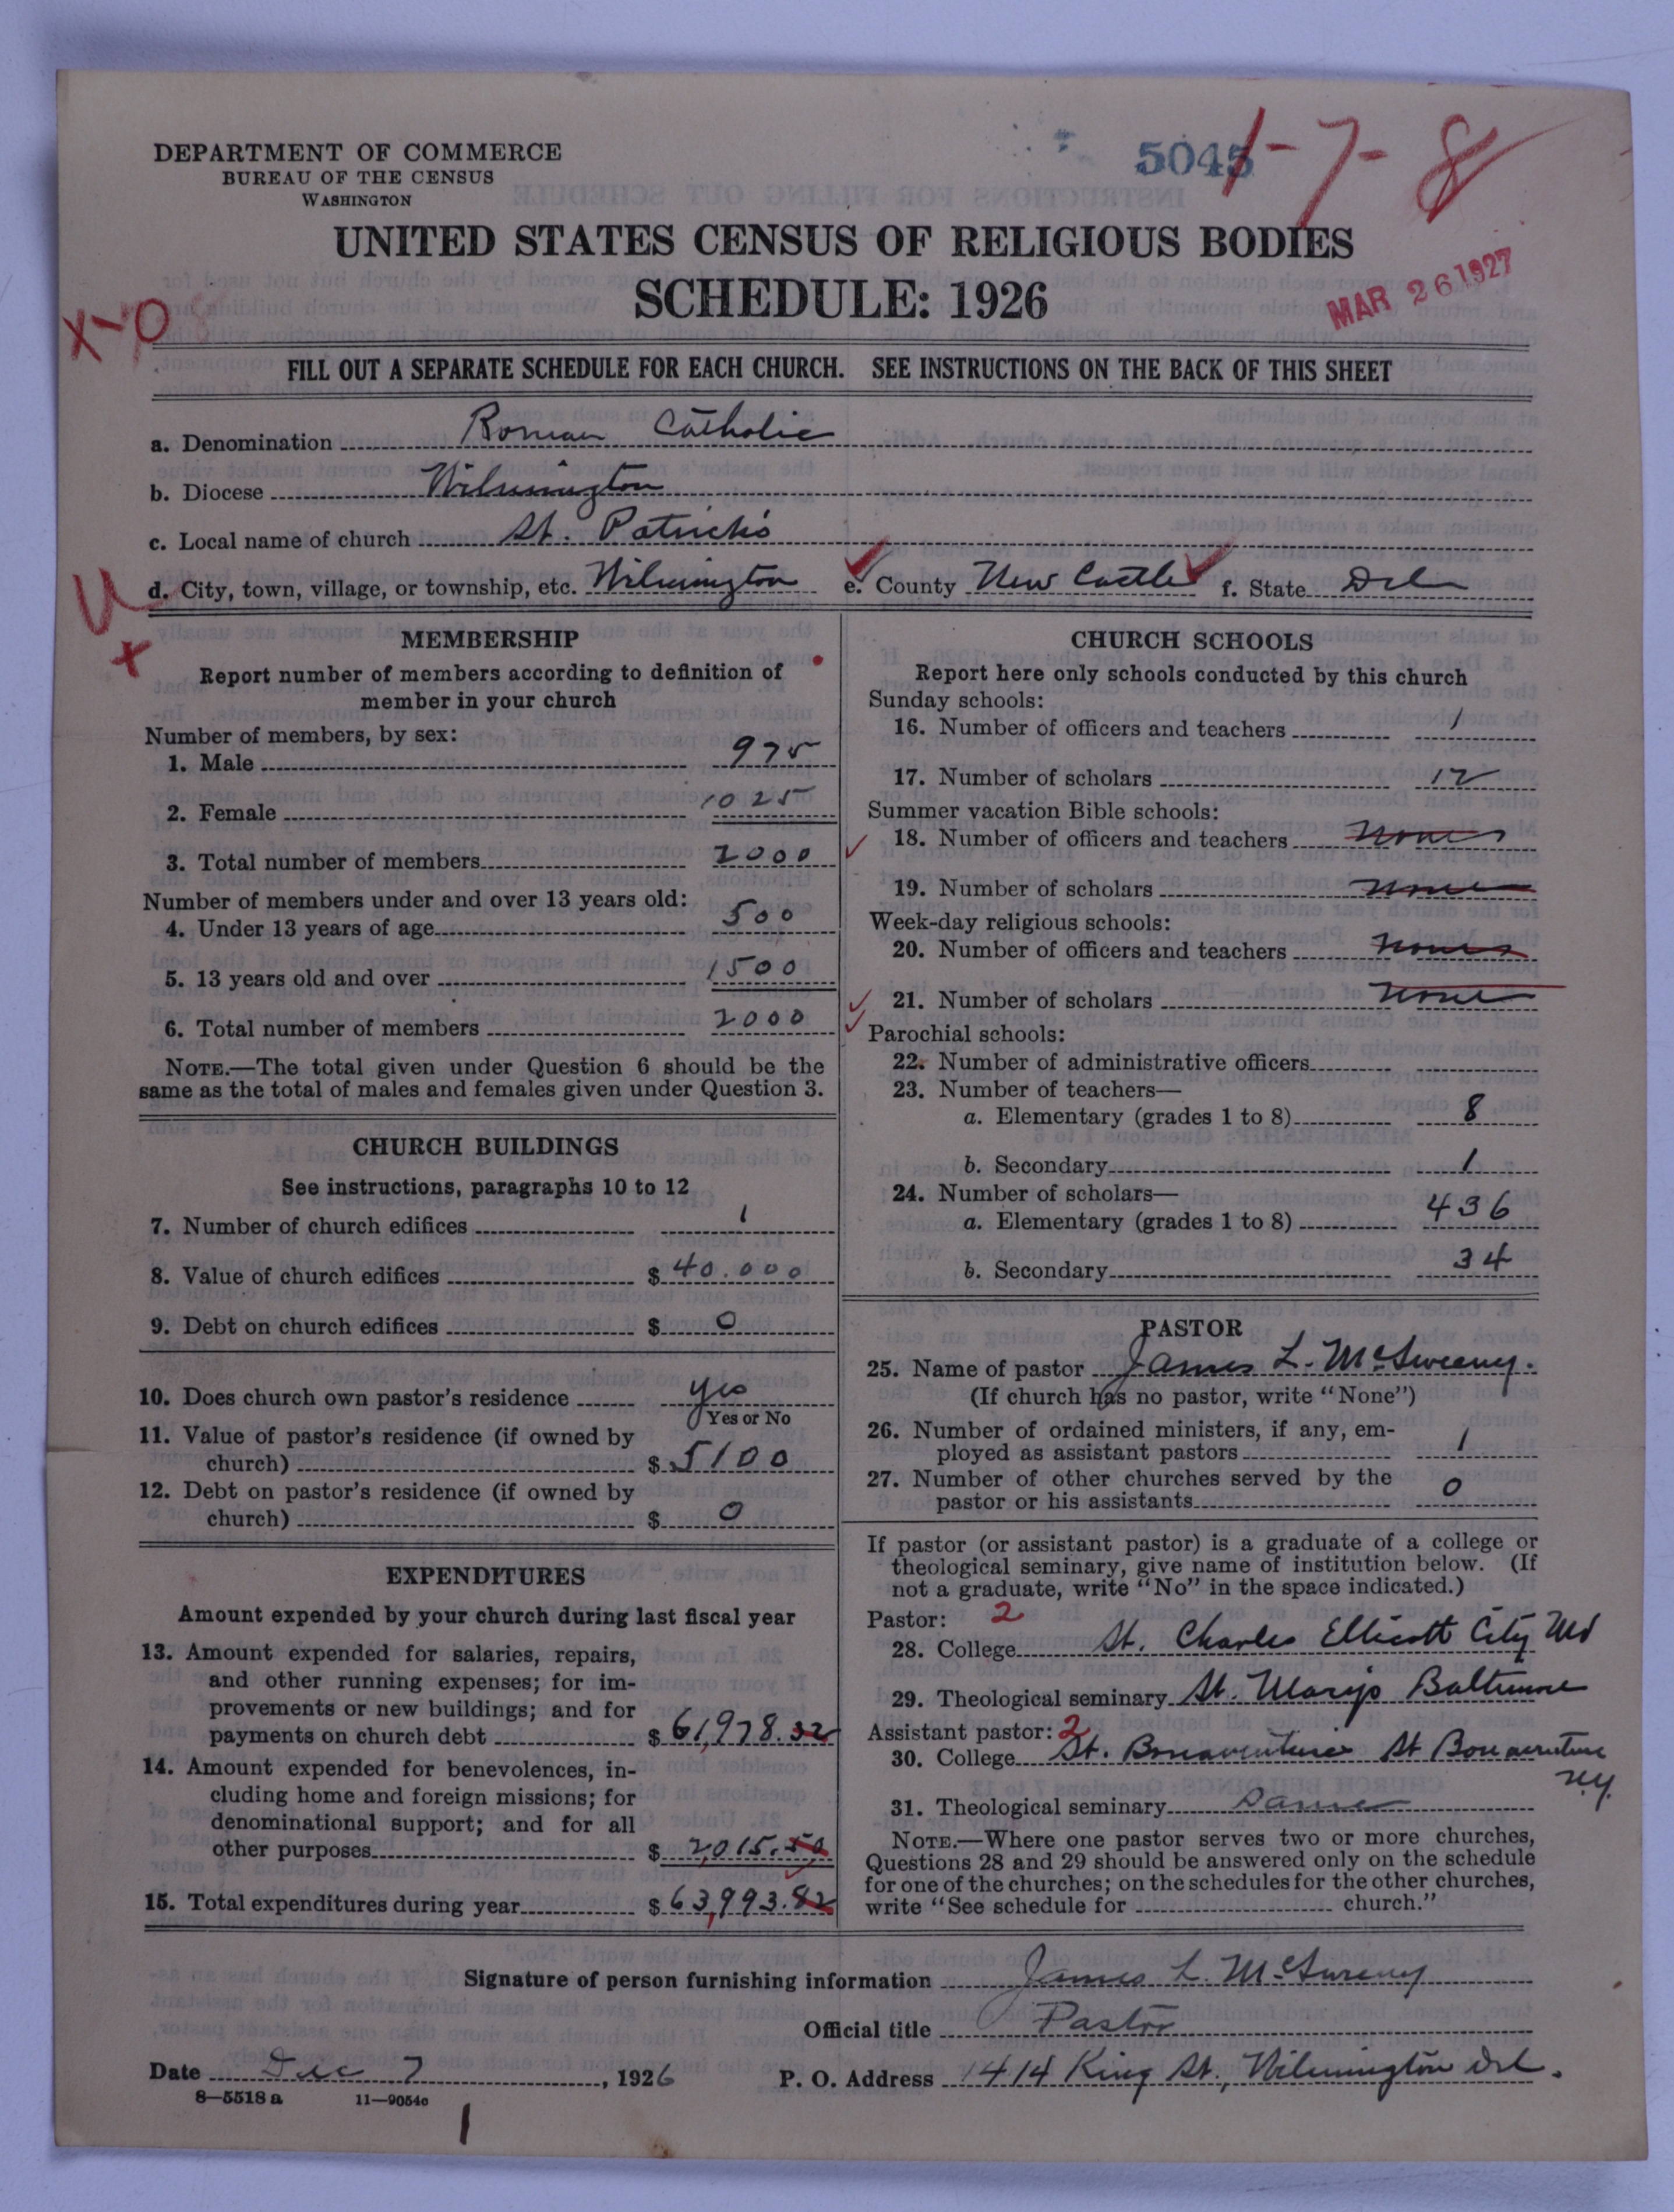 DEPARTMENT OF COMMERCE
BUREAU OF THE CENSUS
WASHINGTON
5045
1-7-8
UNITED STATES CENSUS OF RELIGIOUS BODIES
SCHEDULE: 1926
MAR 26 1927
X-0
FILL OUT A SEPARATE SCHEDULE FOR EACH CHURCH. SEE INSTRUCTIONS ON THE BACK OF THIS SHEET
a. Denomination Roman Catholic
b. Diocese Wilmington
c. Local name of church St. Patrick's
U
d. City, town, village, or township, etc. Wilmington e. County New Castle f. State Del
x
MEMBERSHIP
Report number of members according to definition of
member in your church
Number of members, by sex:
1. Male 975
2. Female 1025
3. Total number of members 2000
Number of members under and over 13 years old:
4. Under 13 years of age 500
5. 13 years old and over 1500
6. Total number of members 2000
NOTE.—The total given under Question 6 should be the
same as the total of males and females given under Question 3.
CHURCH BUILDINGS
See instructions, paragraphs 10 to 12
7. Number of church edifices 1
8. Value of church edifices $ 40.000
9. Debt on church edifices $ 0
10. Does church own pastor's residence yes
Yes or No
11. Value of pastor's residence (if owned by
church) $ 5100
12. Debt on pastor's residence (if owned by
church) $ 0
EXPENDITURES
Amount expended by your church during last fiscal year
13. Amount expended for salaries, repairs,
and other running expenses; for im-
provements or new buildings; and for
payments on church debt $ 61,978.32
14. Amount expended for benevolences, in-
cluding home and foreign missions; for
denominational support; and for all
other purposes $ 2,015.50
15. Total expenditures during year $ 63,993.82
CHURCH SCHOOLS
Report here only schools conducted by this church
Sunday schools:
16. Number of officers and teachers 1
17. Number of scholars 12
Summer vacation Bible schools:
18. Number of officers and teachers none
19. Number of scholars none
Week-day religious schools:
20. Number of officers and teachers none
21. Number of scholars none
Parochial schools:
22. Number of administrative officers
23. Number of teachers—
a. Elementary (grades 1 to 8) 8
b. Secondary 1
24. Number of scholars—
a. Elementary (grades 1 to 8) 436
b. Secondary 34
PASTOR
25. Name of pastor James L. McSweeney.
(If church has no pastor, write "None")
26. Number of ordained ministers, if any, em-
ployed as assistant pastors 1
27. Number of other churches served by the
pastor or his assistants 0
If pastor (or assistant pastor) is a graduate of a college or
theological seminary, give name of institution below. (If
not a graduate, write "No" in the space indicated.)
Pastor: 2
28. College St. Charles Ellicott City Md
29. Theological seminary St. Mary's Baltimore
Assistant pastor: 2
30. College St. Bonaventure's St Bonaventure
N.Y.
31. Theological seminary Same
NOTE.—Where one pastor serves two or more churches,
Questions 28 and 29 should be answered only on the schedule
for one of the churches; on the schedules for the other churches,
write "See schedule for church."
Signature of person furnishing information James L. McSweeney
Official title Pastor
Date Dec 7, 1926 P. O. Address 1414 King St., Wilmington Del.
8—5518 a 11—9054c
1